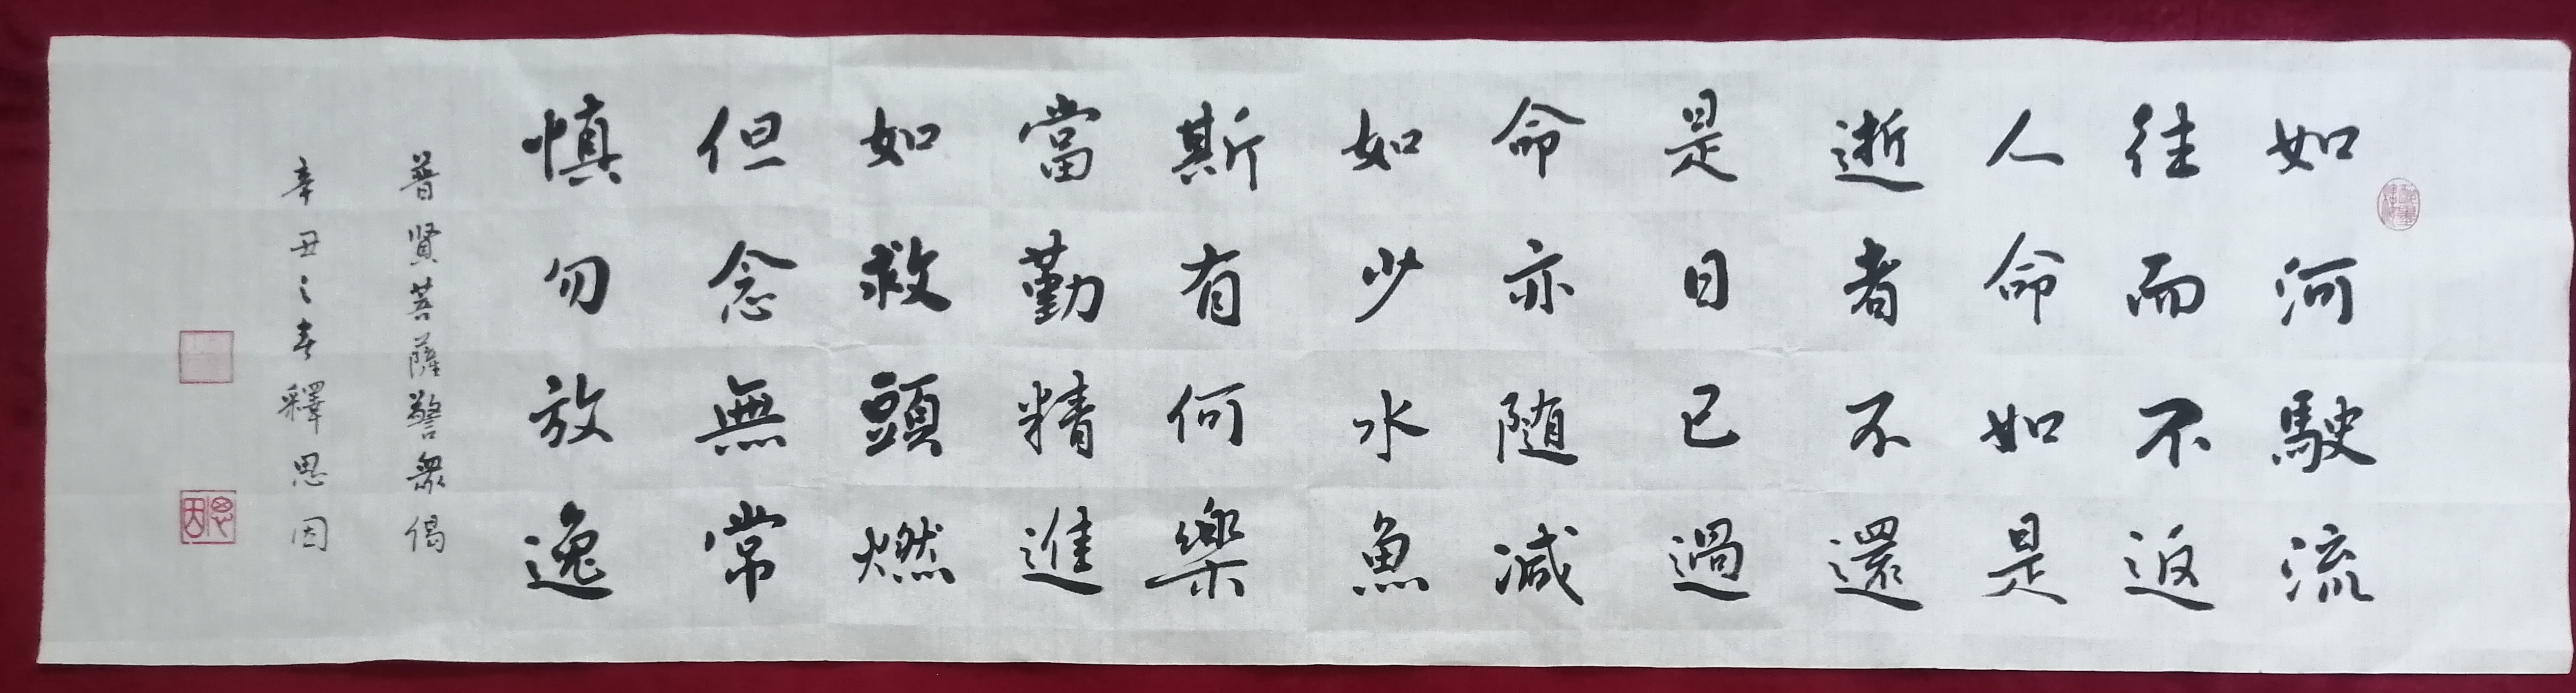 如河駛流
往而不返
人命如是
逝者不還
是日已過
命亦随減
如少水魚
斯有何樂
當勤精進
如救頭燃
但念無常
慎勿放逸
普賢菩薩警衆偈
辛丑之春釋恩因
恩因